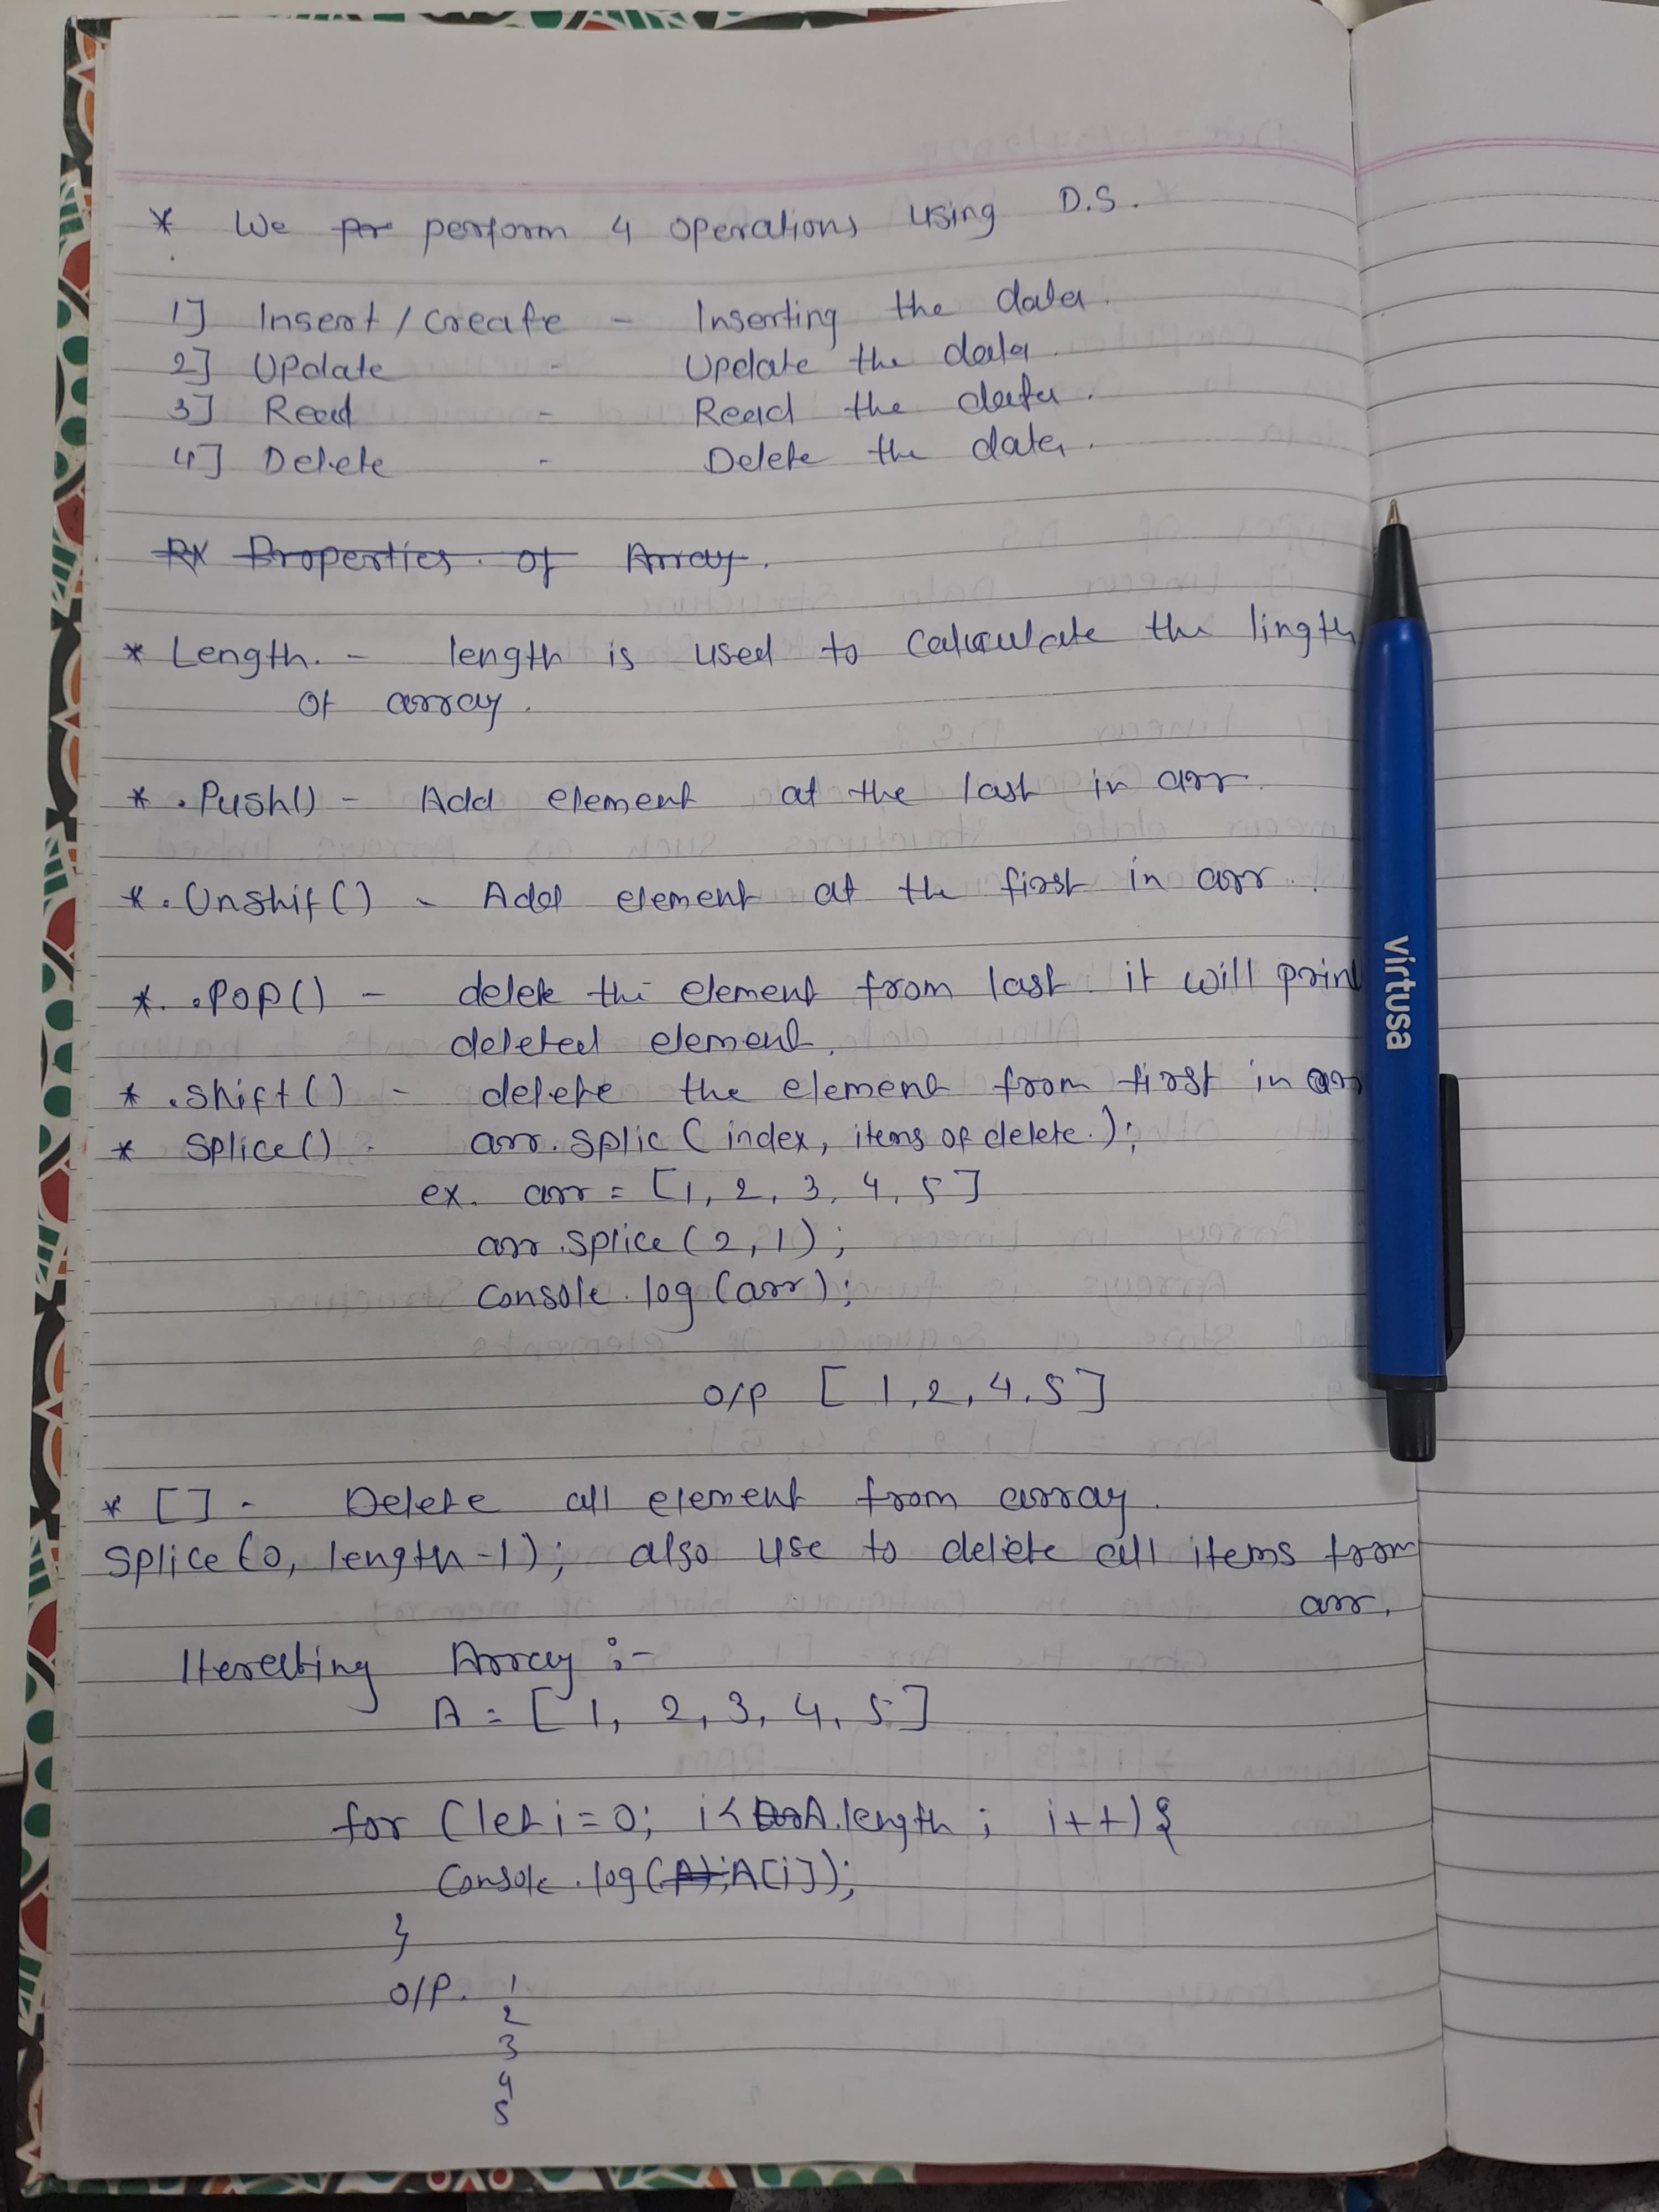 * We per perform 4 operations using D.S.
1] Insert / create - Inserting the data.
2] Update - Update the data.
3] Read - Read the data.
4] Delete - Delete the data.
Properties of Array.
* Length. - length is used to calculate the lingth
of array.
* .Push() - Add element at the last in arr.
* .Unshif() - Add element at the first in arr.
*. .Pop() - delete the element from last. it will prin
deleted element.
* .shift() - delete the element from first in arr
* Splice() - arr.splic ( index, items of delete.);
ex. arr = [1, 2, 3, 4, 5]
arr.splice(2,1);
Console.log(arr);
o/p [ 1,2,4,5]
* [] - Delete all element from array.
splice(0, length-1); also use to delete all items from
arr.
Iterating Array :-
A = [ 1, 2, 3, 4, 5]
for (let i=0; i<A.length ; i++){
Console.log(A);A[i]);
}
o/p. 1
2
3
4
5
virtusa